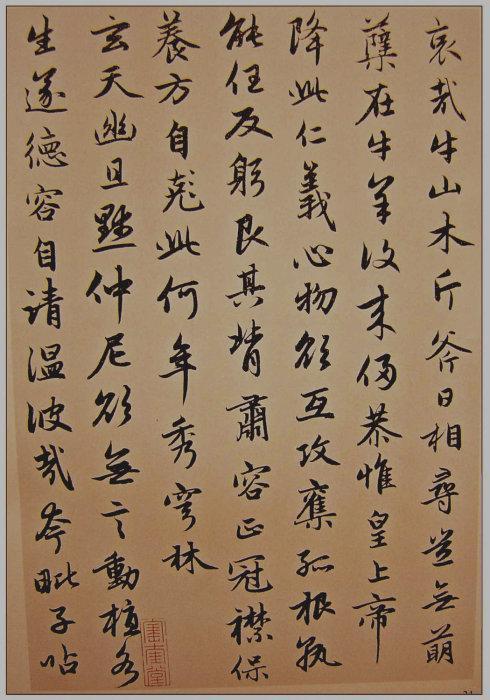 哀哉牛山木斤斧日相尋豈無萌
蘖在牛羊復来侵恭惟皇上帝
降此仁義心物欲互攻奪孤根孰
能任反躬艮其背肅容正冠襟保
養方自此何年秀穹林
玄天幽且默仲尼欲無言動植各
生遂德容自請温彼哉夸毗子呫